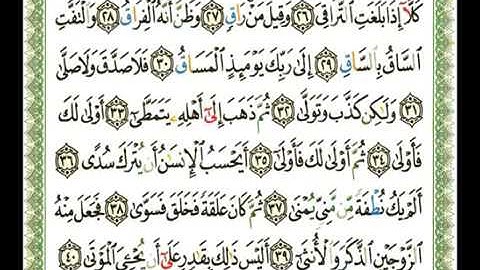 كَلَّا إِذَا بَلَغَتِ التَّرَاقِيَ ﴿٢٦﴾ وَقِيلَ مَنْ رَاقٍ ﴿٢٧﴾ وَظَنَّ أَنَّهُ الْفِرَاقُ ﴿٢٨﴾ وَالْتَفَّتِ
السَّاقُ بِالسَّاقِ ﴿٢٩﴾ إِلَى رَبِّكَ يَوْمَئِذٍ الْمَسَاقُ ﴿٣٠﴾ فَلَا صَدَّقَ وَلَا صَلَّى
﴿٣١﴾ وَلَكِنْ كَذَّبَ وَتَوَلَّى ﴿٣٢﴾ ثُمَّ ذَهَبَ إِلَى أَهْلِهِ يَتَمَطَّى ﴿٣٣﴾ أَوْلَى لَكَ
فَأَوْلَى ﴿٣٤﴾ ثُمَّ أَوْلَى لَكَ فَأَوْلَى ﴿٣٥﴾ أَيَحْسَبُ الْإِنْسَانُ أَنْ يُتْرَكَ سُدًى ﴿٣٦﴾
أَلَمْ يَكُ نُطْفَةً مِنْ مَنِيٍّ يُمْنَى ﴿٣٧﴾ ثُمَّ كَانَ عَلَقَةً فَخَلَقَ فَسَوَّى ﴿٣٨﴾ فَجَعَلَ مِنْهُ
الزَّوْجَيْنِ الذَّكَرَ وَالْأُنْثَى ﴿٣٩﴾ أَلَيْسَ ذَلِكَ بِقَادِرٍ عَلَى أَنْ يُحْيِيَ الْمَوْتَى ﴿٤٠﴾